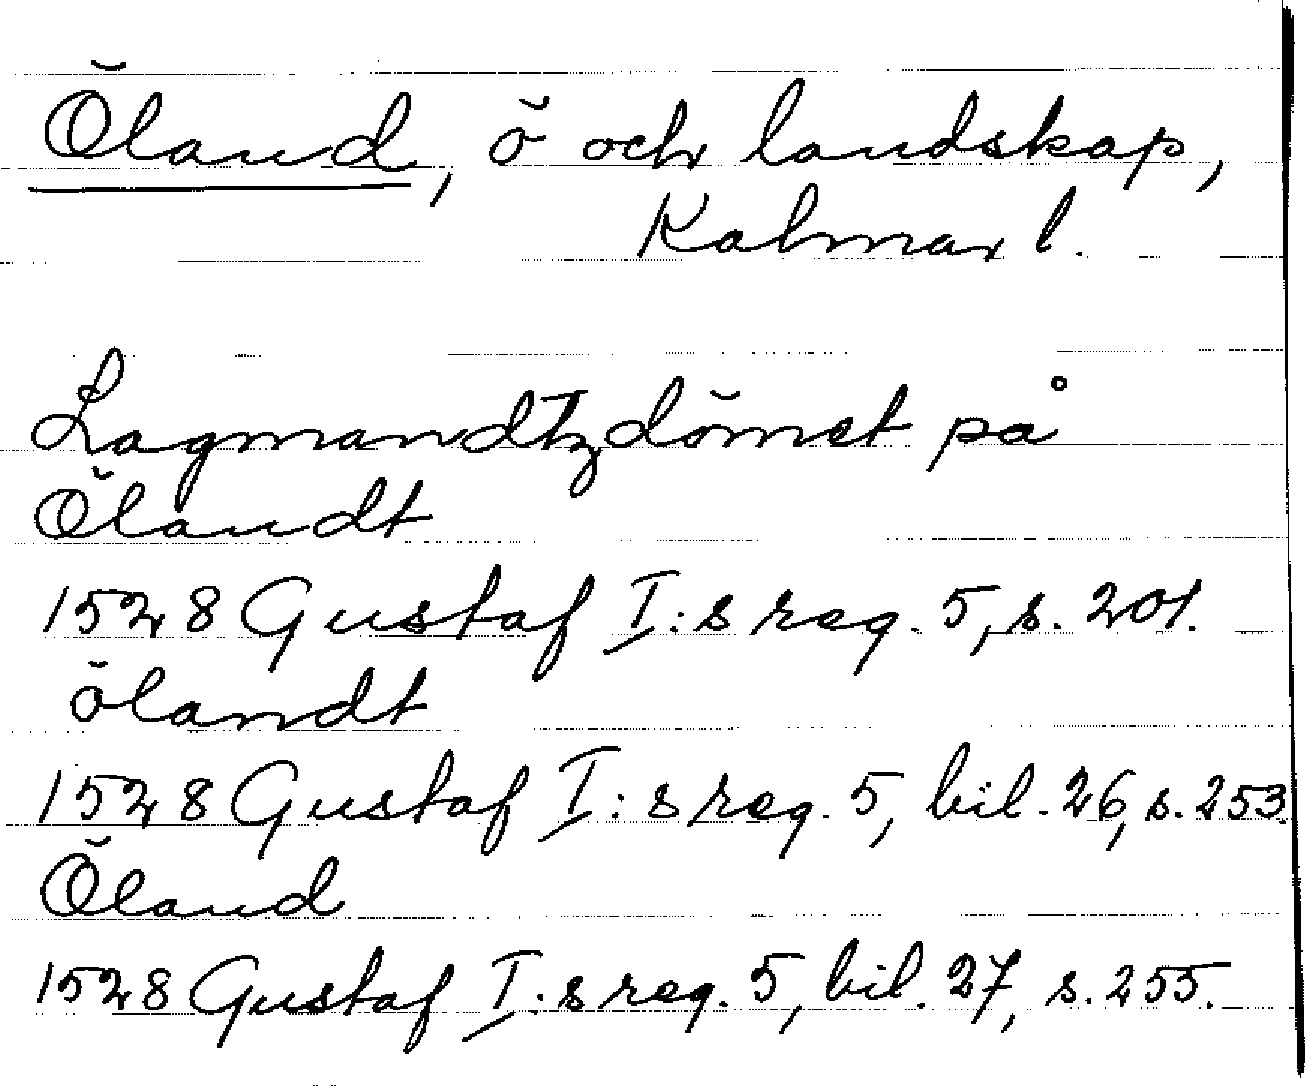 Öland, ö och landskap,
Kalmar l.
Lagmandtzdömet på
Ölandt
1528 Gustaf I:s reg. 5, s. 201.
ölandt
1528 Gustaf I:s reg. 5, bil. 26, s. 253.
Öland
1528 Gustaf I:s reg. 5, bil. 27, s. 255.